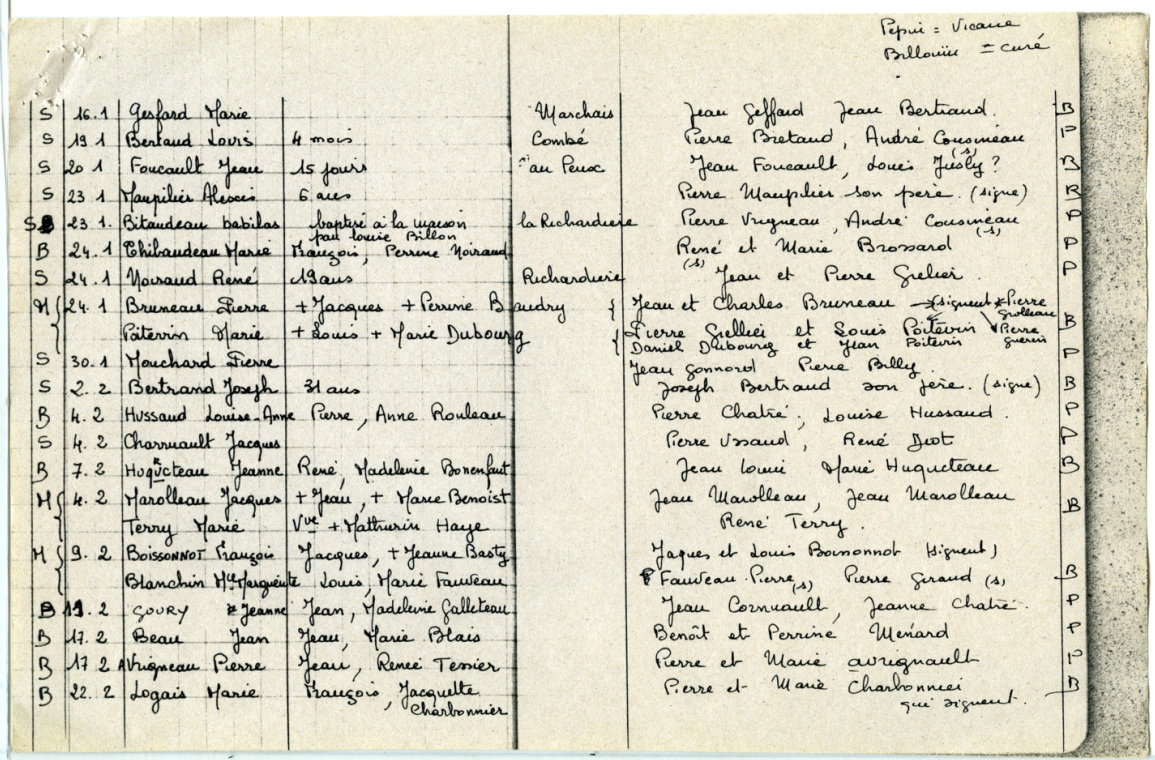 Pepin = Vicaire
Billouin = curé
S 16.1 Gesfard Marie Marchais Jean Geffard Jean Bertrand. B
S 19 1 Bertaud Louis 4 mois Combé Pierre Bretaud, André Cousineau (s) P
S 20 1 Foucault Jean 15 jours au Peux Jean Foucault, Louis Jusly ? B
S 23 1 Maupilier Alexis 6 ans Pierre Maupilier son père. (signe) B
S 23.1. Bitaudeau babilas baptisé à la maison la Richardiere Pierre Vrigneau, André Cousineau (s) P
par Louise Billon
B 24.1 Thibaudeau Marie François, Perrine Noiraud René et Marie Brossard P
S 24.1 Noiraud René 19 ans Richardiere (s) Jean et Pierre Grelier P
M { 24.1 Bruneau Pierre + Jacques + Perrine Baudry { Jean et Charles Bruneau signent Pierre Grolleau
Poitevin Marie + Louis + Marie Dubourg { Pierre Gelliei et Louis Poitevin Pierre Guerin B
Daniel Dubourg et Jean Poitevin
S 30.1 Mouchard Pierre Jean Gonnord Pierre Billy. P
S 2.2 Bertrand Joseph 31 ans Joseph Bertrand son père. (signe) B
B 4.2 Hussaud Louise-Anne Pierre, Anne Rouleau Pierre Chatré, Louise Hussaud. P
S 4.2 Charruault Jacques Pierre Ussaud, René Diot P
B 7.2 Huqucteau Jeanne René, Madeleine Bonenfant Jean Louis Marie Huqueteau B
M { 4.2 Marolleau Jacques + Jean, + Marie Benoist Jean Marolleau, Jean Marolleau B
Terry Marie Vve + Mathurin Haye René Terry.
M { 9.2 Boissonnot François Jacques, + Jeanne Basty Jaques et Louis Boissonnot (signent)
Blanchin Mie Marguerite Louis, Marie Fauveau Fauveau Pierre (s) Pierre Giraud (s) B
B 19.2 GOURY Jeanne Jean, Madeleine Galleteau Jean Cornuault, Jeanne Chatré. P
B 17.2 Beau Jean Jean, Marie Blais Benoît et Perrine Menard P
B 17 2 AVrigneau Pierre Jean, Renée Tessier Pierre et Marie avrignault P
B 22.2 Logais Marie François, Jacquette Pierre et Marie Charbonnier B
Charbonnier qui signent.